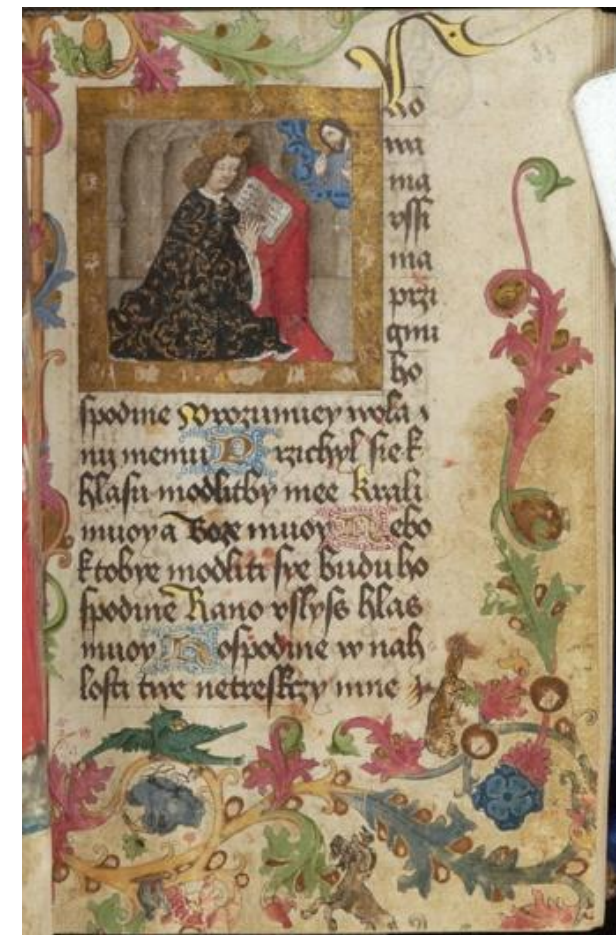 33
wa
ma
vssi
ma
przi
gmi
ho
spodine Wrozumiey wola
nij memu Przichyl sie k
hlasu modlitby mee Krali
muoy a Boze muoy Nebo
k tobye modliti sye budu ho
spodine Rano vslyss hlas
muoy Hospodine w nah
losti twe netreskzy mne